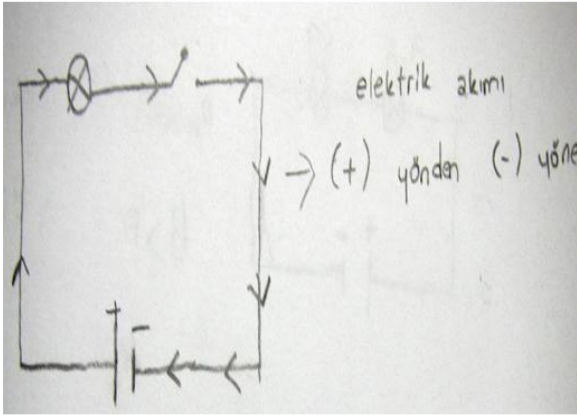 elektrik akımı
→ (+) yönden (-) yöne
+
-